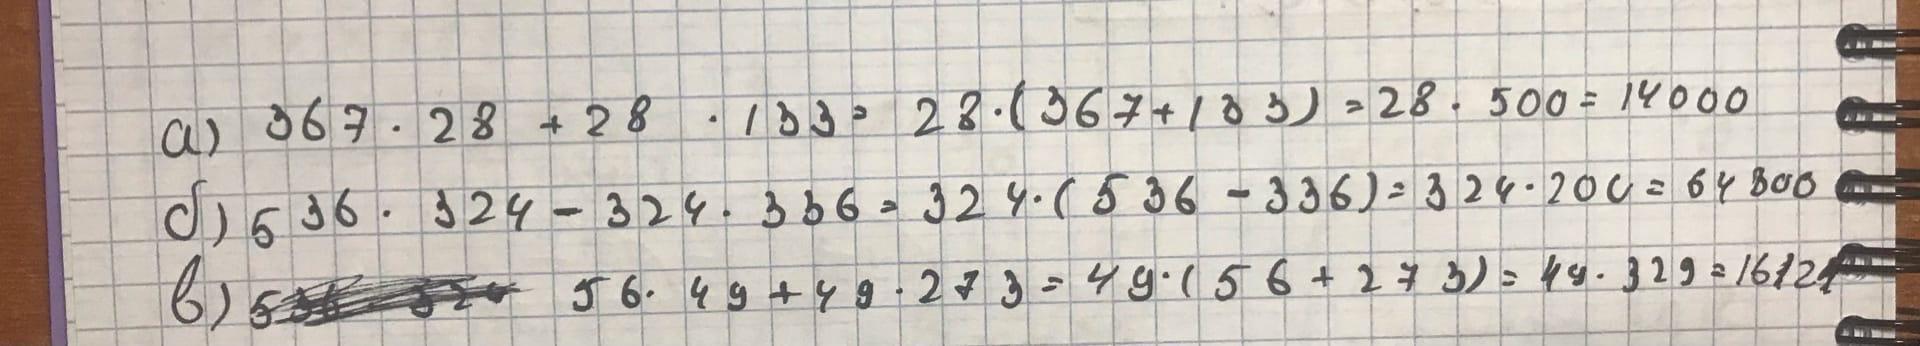 а) 367 · 28 + 28 · 133 = 28 · (367 + 133) = 28 · 500 = 14000
б) 536 · 324 - 324 · 336 = 324 · (536 - 336) = 324 · 200 = 64800
в) 56 · 49 + 49 · 273 = 49 · (56 + 273) = 49 · 329 = 16121